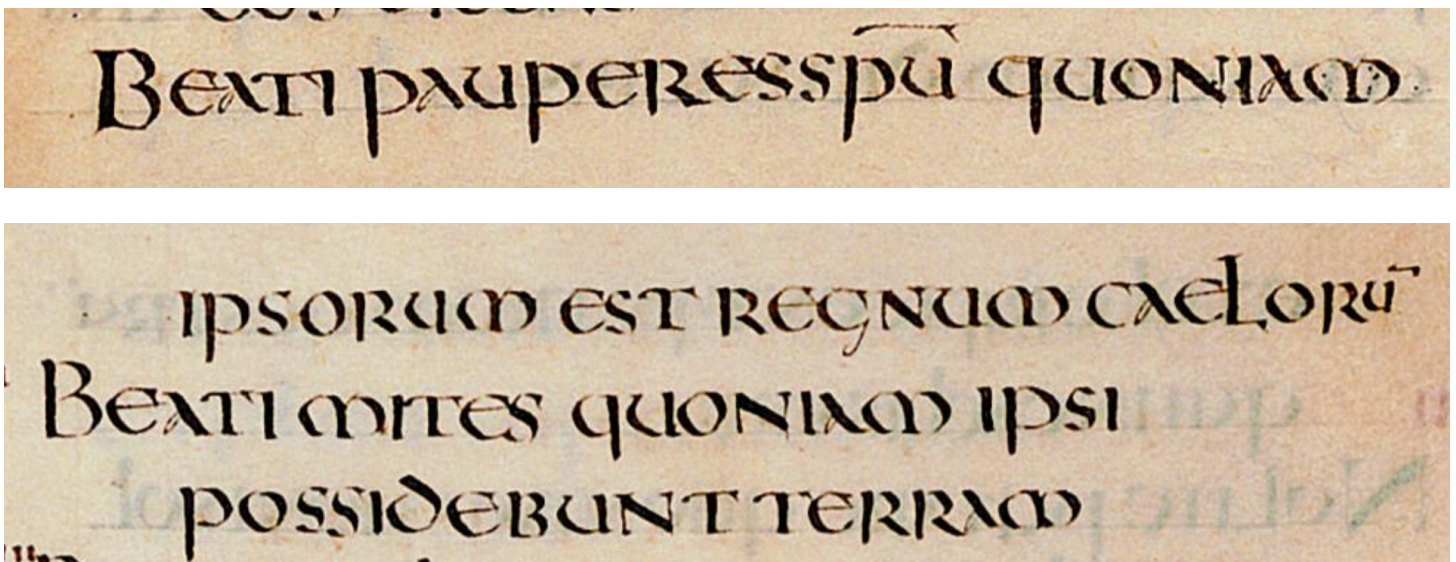 Beati pauperes spū quoniam
ipsorum est regnum caelorū
Beati mites quoniam ipsi
possidebunt terram